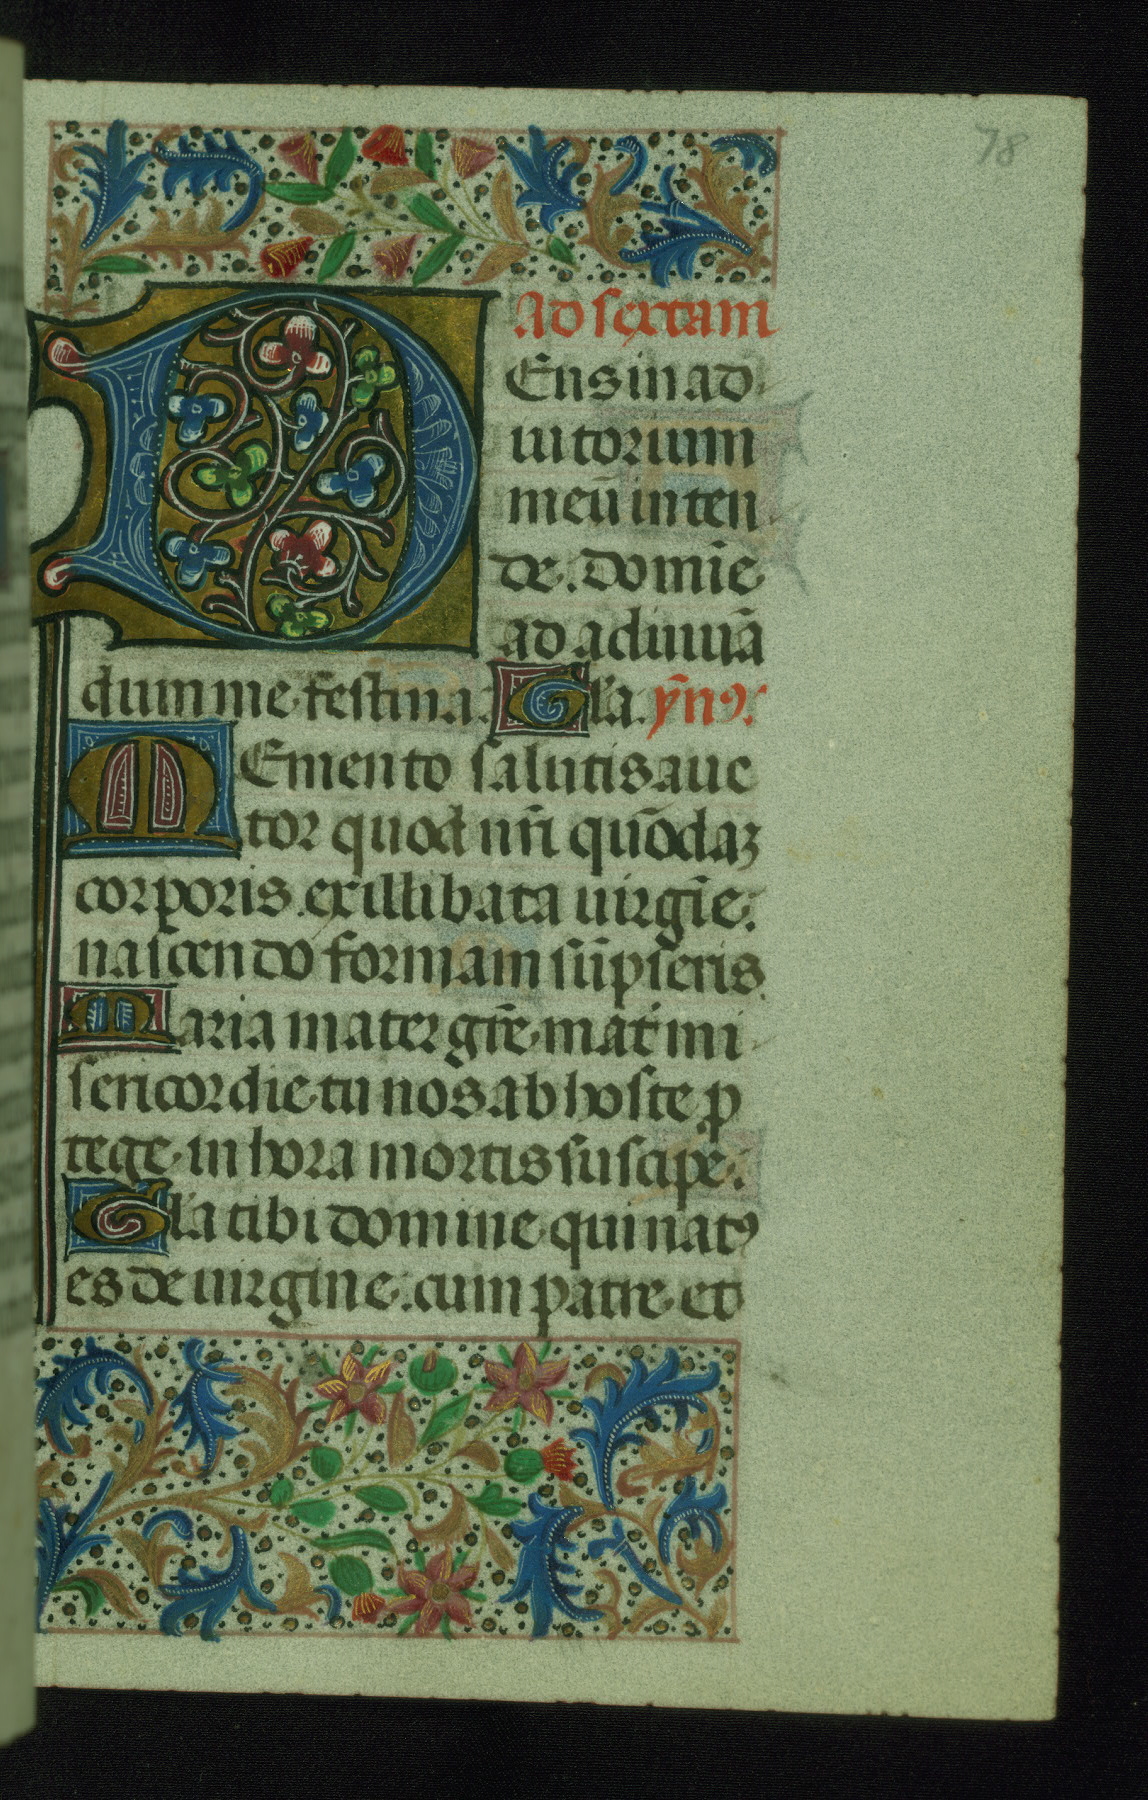 78
Ad sextam
DEus in ad
iutorium
meū inten
de. domīe
ad adiuuā
dum me festina. Gl'a. ẏm̄ꝯ.
MEmento salutis auc
tor quod nr̄i quōdaꝫ
corporis. ex illibata uirgīe.
nascendo formam sūpseris
Maria mater gr̄e. mat' mi
sericordie. tu nos ab hoste p
tege. in hora mortis suscipe.
Gl'a tibi domine qui natꝯ
es de uirgine. cum patre. et